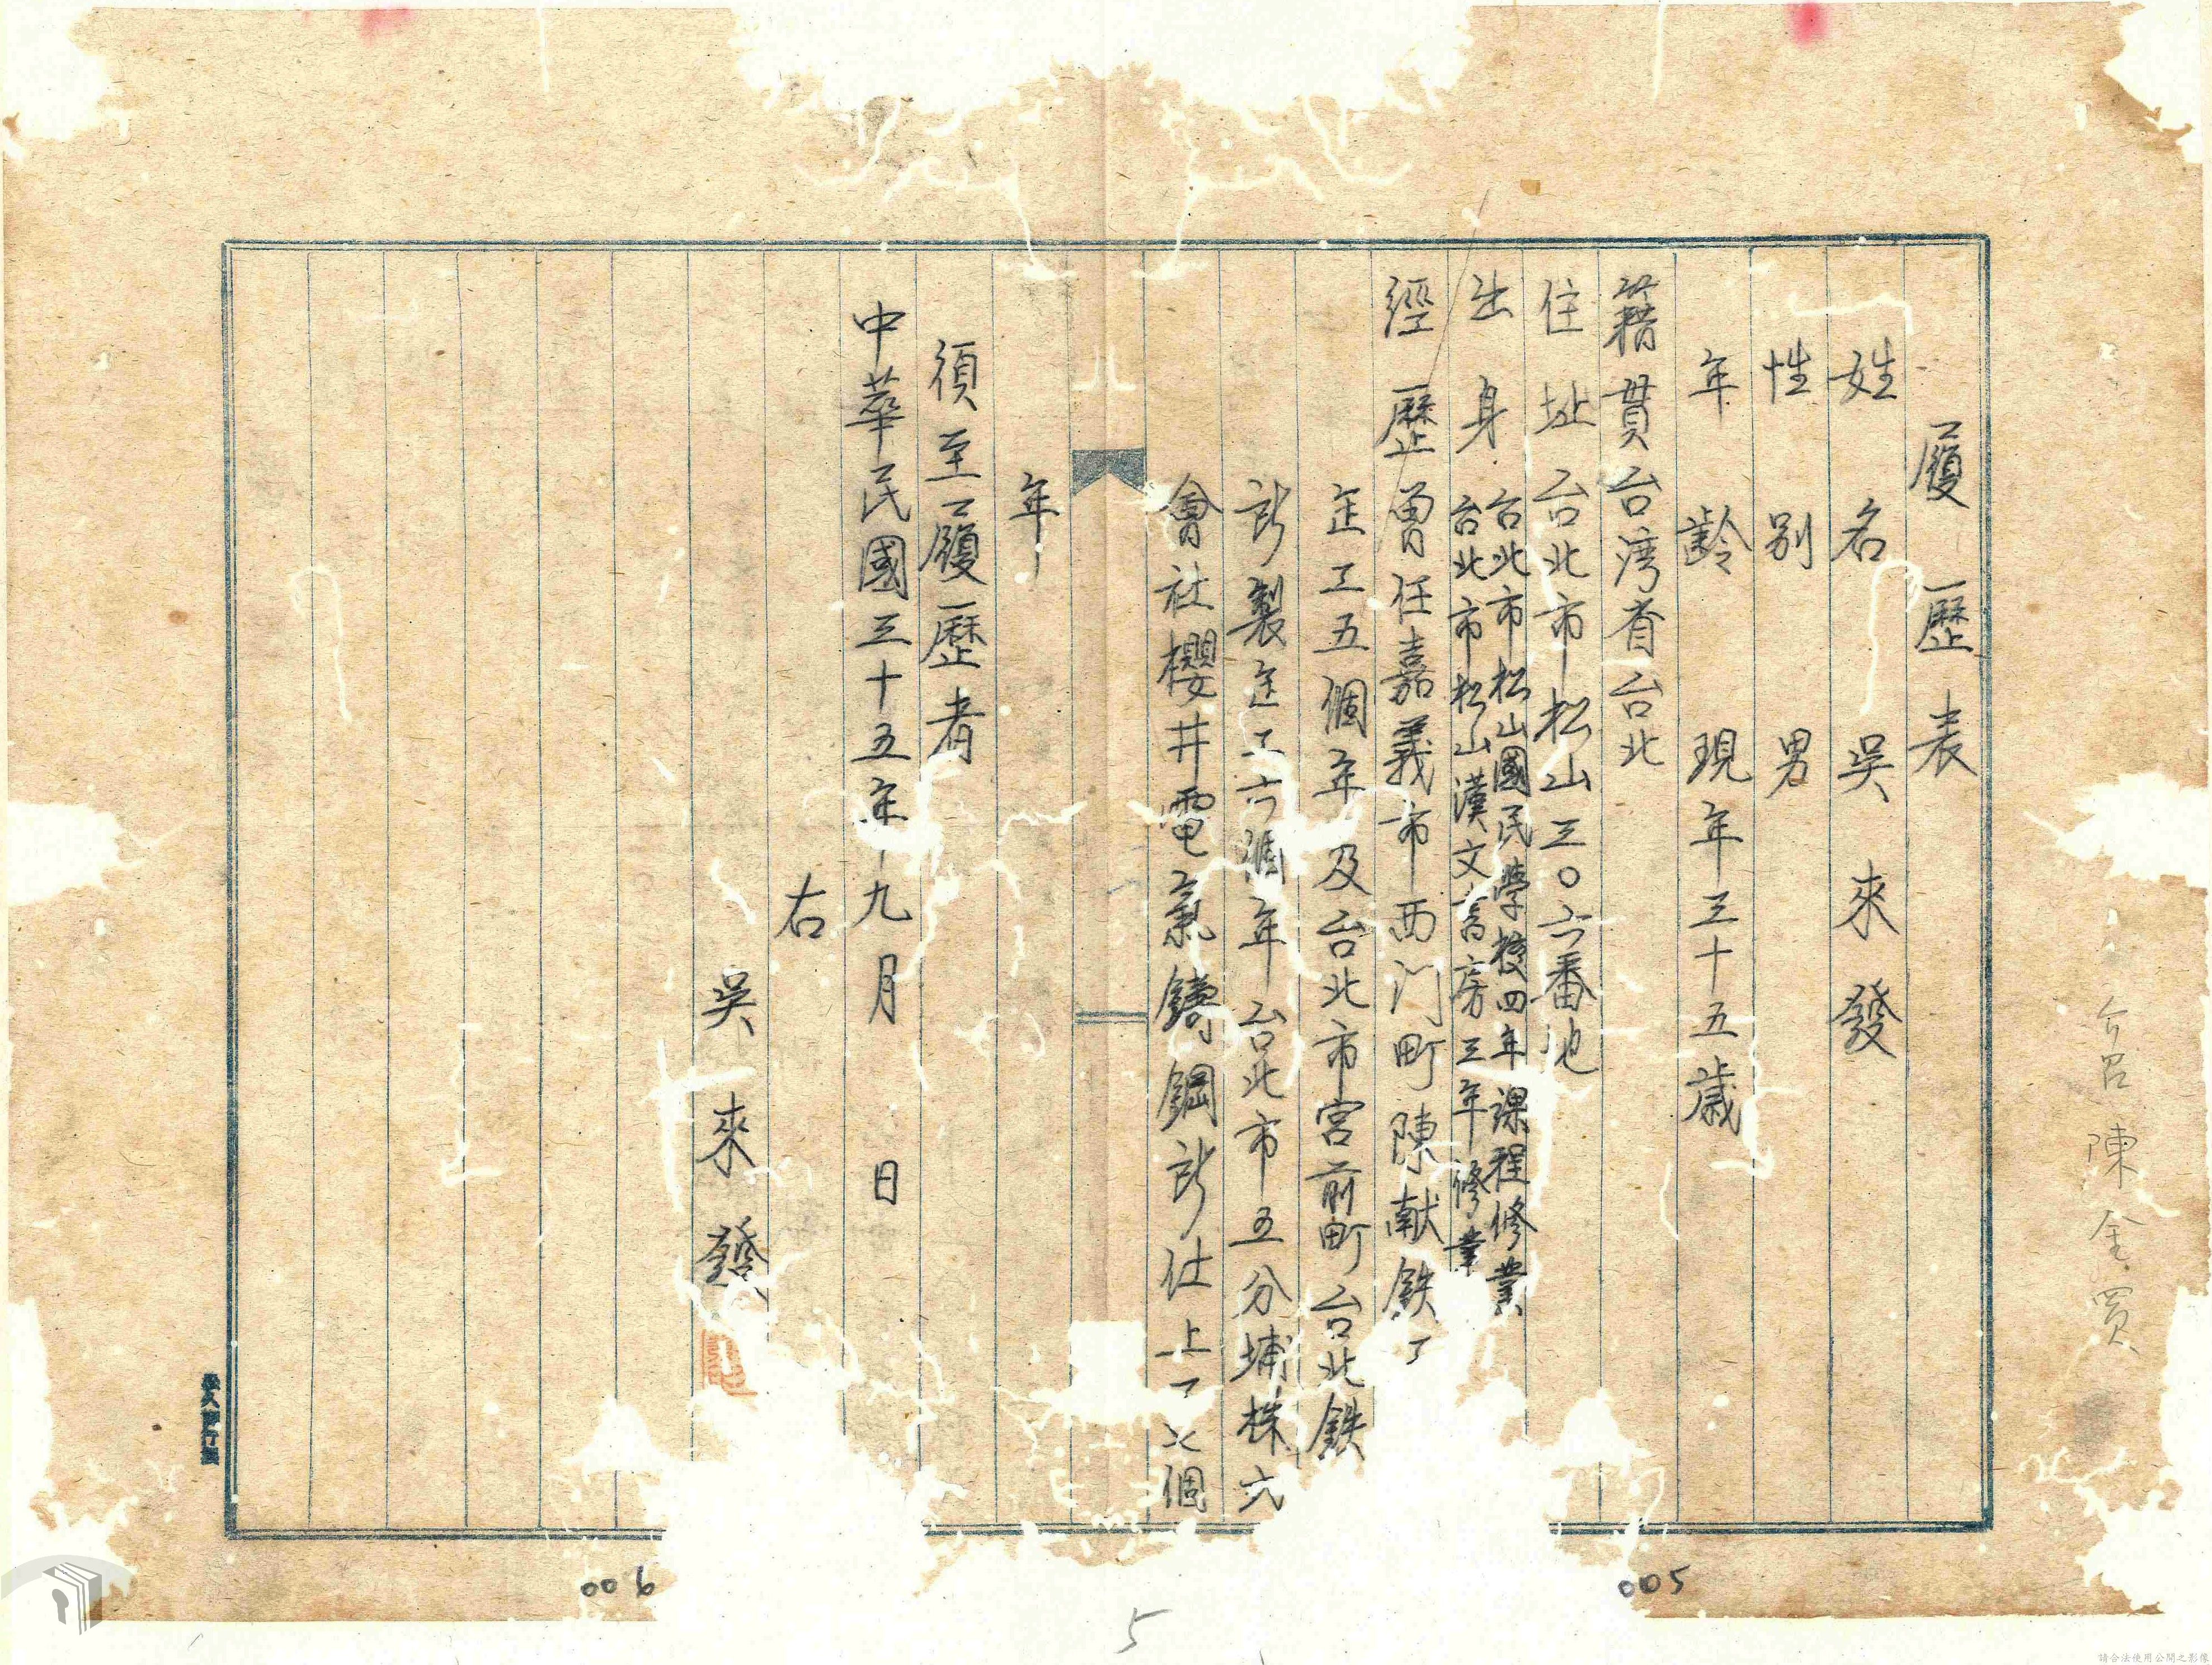 介召 陳金買
履歷表
姓名 吳來發
性別 男
年齡 現年三十五歲
籍貫 台湾省台北
住址 台北市松山三〇六番地
出身 台北市松山國民學校四年課程修業
台北市松山漢文書房三年修業
經歷 曾任嘉義市西门町陳献鉄工
正工五個年及台北市宮前町台北鉄
所製正工六個年台北市五分埔株式
會社櫻井電氣鑄鋼所仕上工乂個
年
須至履歷者
中華民國三十五年九月 日
右
吳來發
006
005
5
請合法使用公開之影像